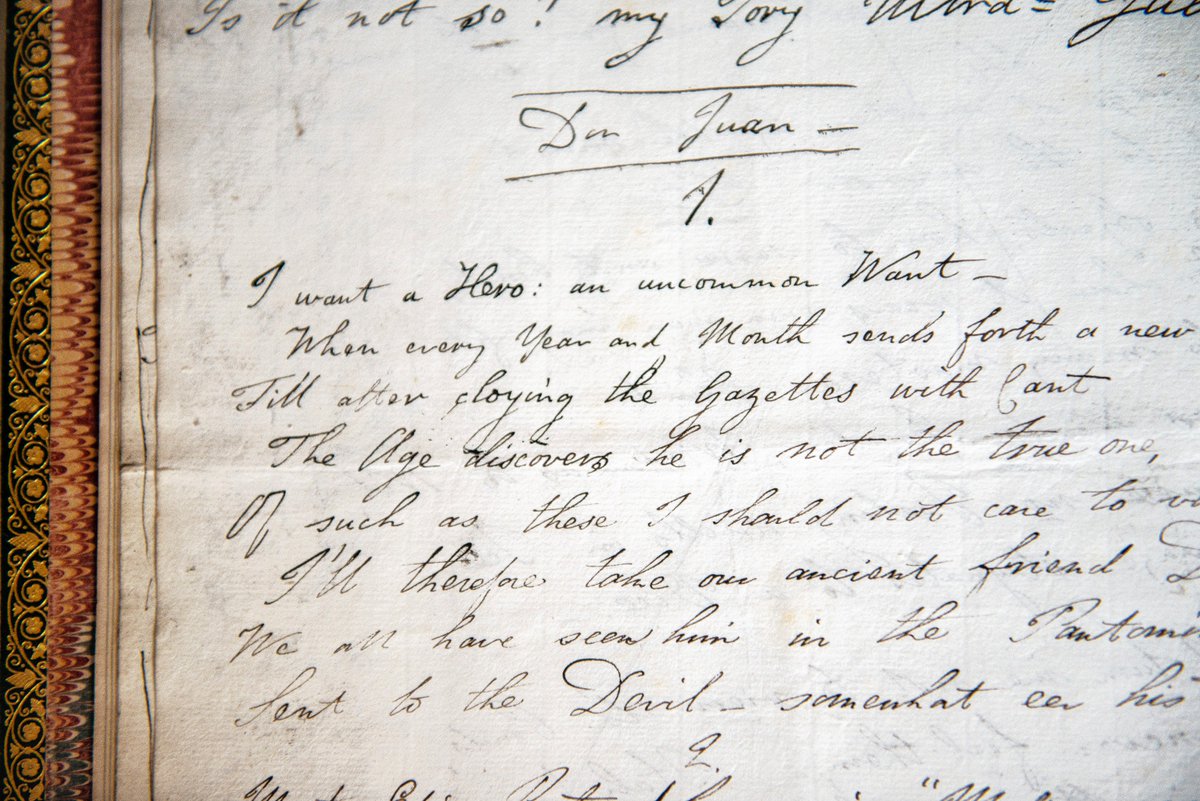 Is it not so? my Tory
Don Juan –
1.
I want a Hero: an uncommon Want –
When every Year and Month sends forth a new
Till after cloying the Gazettes with Cant
The Age discovers he is not the true one,
Of such as these I should not care to
I'll therefore take our ancient friend
We all have seen him in the
Sent to the Devil – somewhat eer his
2.